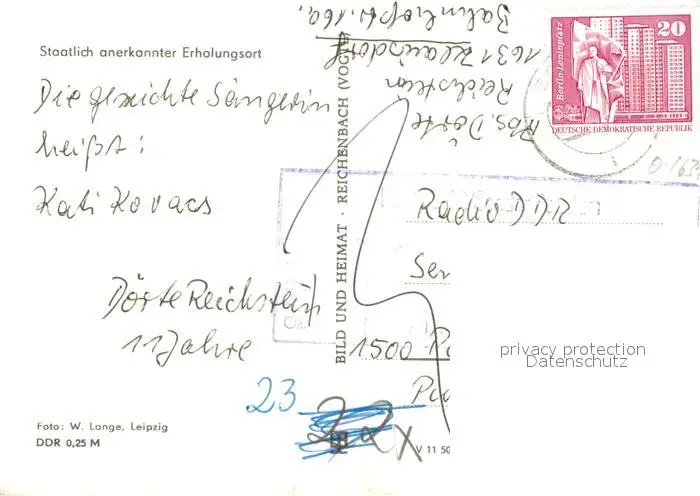 Staatlich anerkannter Erholungsort
Die gesuchte Sängerin
heißt:
Kati Kovacs
Dörte Reichstein
11 Jahre
23
Foto: W. Lange, Leipzig
DDR 0,25 M
BILD UND HEIMAT · REICHENBACH (VOGTL
V 11 50
Abs. Dörte
Reichstein
1631
Bahnhofstr. 16a
Berlin-Leninplatz
20
DEUTSCHE DEMOKRATISCHE REPUBLIK
Radio DDR
Sen
1500 Po
privacy protection
Datenschutz